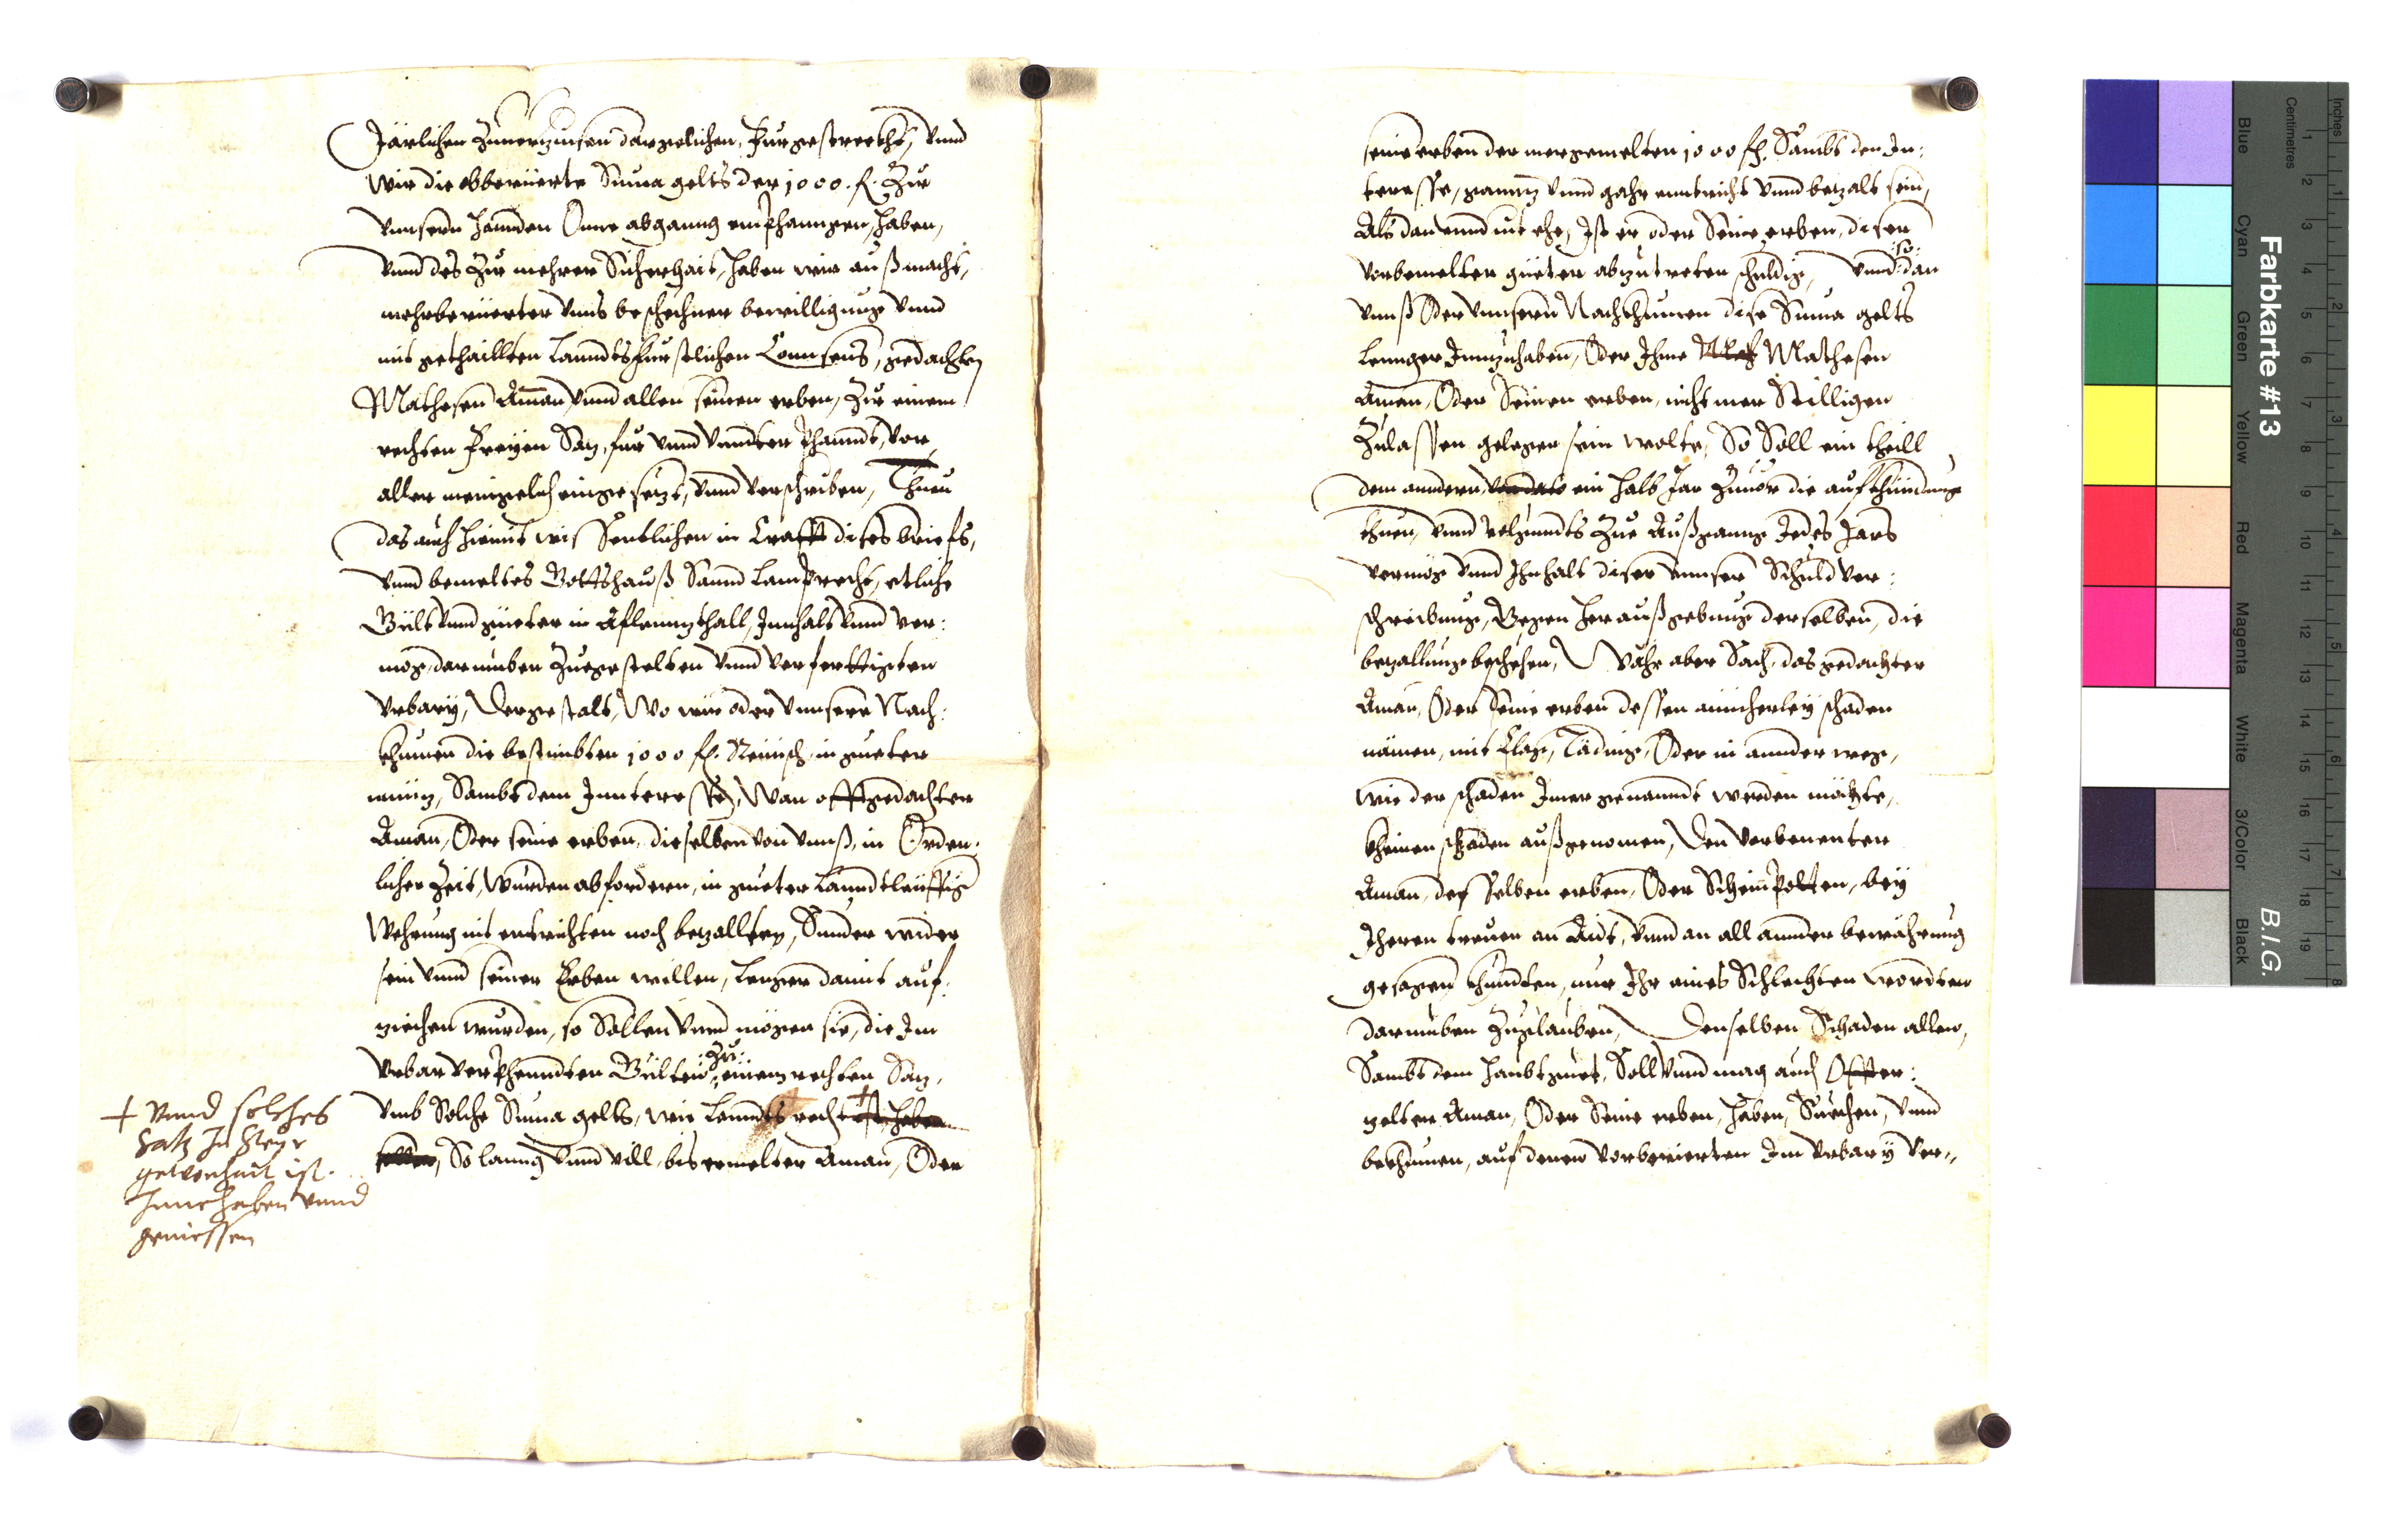 Järlichen Zuuerzinsen dargelichen, Furgestreckht, vnnd
Wir die obberüerte Suma gelts der 1000. fl. Zue
vnnsern Hannden Onne abganng emphanngen, Haben,
vnnd des Zue mehrer Sicherhait, Haben wir auß macht,
mehrberüerter vnns beschechner bewilligung vnnd
mitgethaillten Lanndtsfürstlichen Connsens, gedachten
Mathesen Aman, vnnd allen seinen erben, Zue einem
rechten Freyen Saz, für vnnd vnndter Phanndt, vor
aller menigelich eingesetzt, vnnd verschriben, Thuen
das auch hiemit wissentlichen in Crafft dises briefs,
vnnd bemeltes Gottshauß Sannd Lamprecht, etliche
Gült vnnd güeter in Aflennzthall, Innhalt vnnd ver:
mög, darnüben Zuegestelten vnnd verfertigten
Vrbary, Dergestalt, Wo wir oder vnnsere Nach:
khumen die bestimbten 1000 fl. Reinisch, in gueter
münz, Sambt dem Innteresse, Wan offtgedachter
Aman, Oder seine erben, dieselben von vnnß, in Orden:
licher Zeit, wurden abfordern, in gueter Lanndtleüffig
Wehrung nit entrichten noch bezallten, Sunder wider
sein vnnd seiner Erben willen, lenger damit auf:
ziechen wurden, so Sollen vnnd mögen sie, die Im
Vrbar verphenndten Gülten :Zu: einem rechten Saz,
vmb Solche Suma gelts, wie Lanndts recht ist haben
sollen, So lanng vnnd vill, bis ermelter Aman, Oder
+ vnnd solches
Satz In Steyr
gewonhait ist.
Innehaben vnnd
geniessen
seine erben der mergemelten 1000 fl. Sambt den In:
teresse, gannz vnnd gahr enntricht vnnd bezalt sein,
Als dan vnnd nit ehe, Ist er oder Seine erben, diser
vorbemelten güeter abzutreten schuldig, vnnd :so: dan
vnnß Oder vnnsern Nachkhumen dise Suma gelts
lennger Innzuhaben, Oder Ihme Mathesen
Aman, Oder Seinen erben, nicht mer Stilligen
Zulassen gelegen sein wolte, So Soll ein theill
dem anndern, ein halb Jar Zuuor die aufkhündung
thuen, vnnd volgunndts Zue Außganng Jedes Jars
vermög vnnd Innhalt diser vnnser Schuld ver:
schreibung, Gegen Heraußgebung derselben, die
bezallung beschehen, Wahr aber Sach, das gedachter
Aman, Oder seine erben dessen ainicherley schaden
nämen, mit Clag, Täding, Oder in annder weg,
wie der schaden Imer genanndt werden möchte,
kheinen schaden außgenomen, Den vorbenenten
Aman, desselben erben, Oder Scheinpotten, bey
Iheren treuen an Aidt, vnnd an all annder bewährung
gesagen khundten, nur Ihr eines Schlechten wordten
darnüben Zuglauben, Denselben Schaden allen,
Sambt dem Haubtguet, Soll vnnd mag auch Offter:
gelten Aman, Oder Seine erben, Haben, Suechen, vnnd
bekhumen, auf denen vorberierten Im Vrbary ver,,
Farbkarte #13
B.I.G.
Inches
Centimetres
Blue
Cyan
Green
Yellow
Red
Magenta
White
3/Color
Black